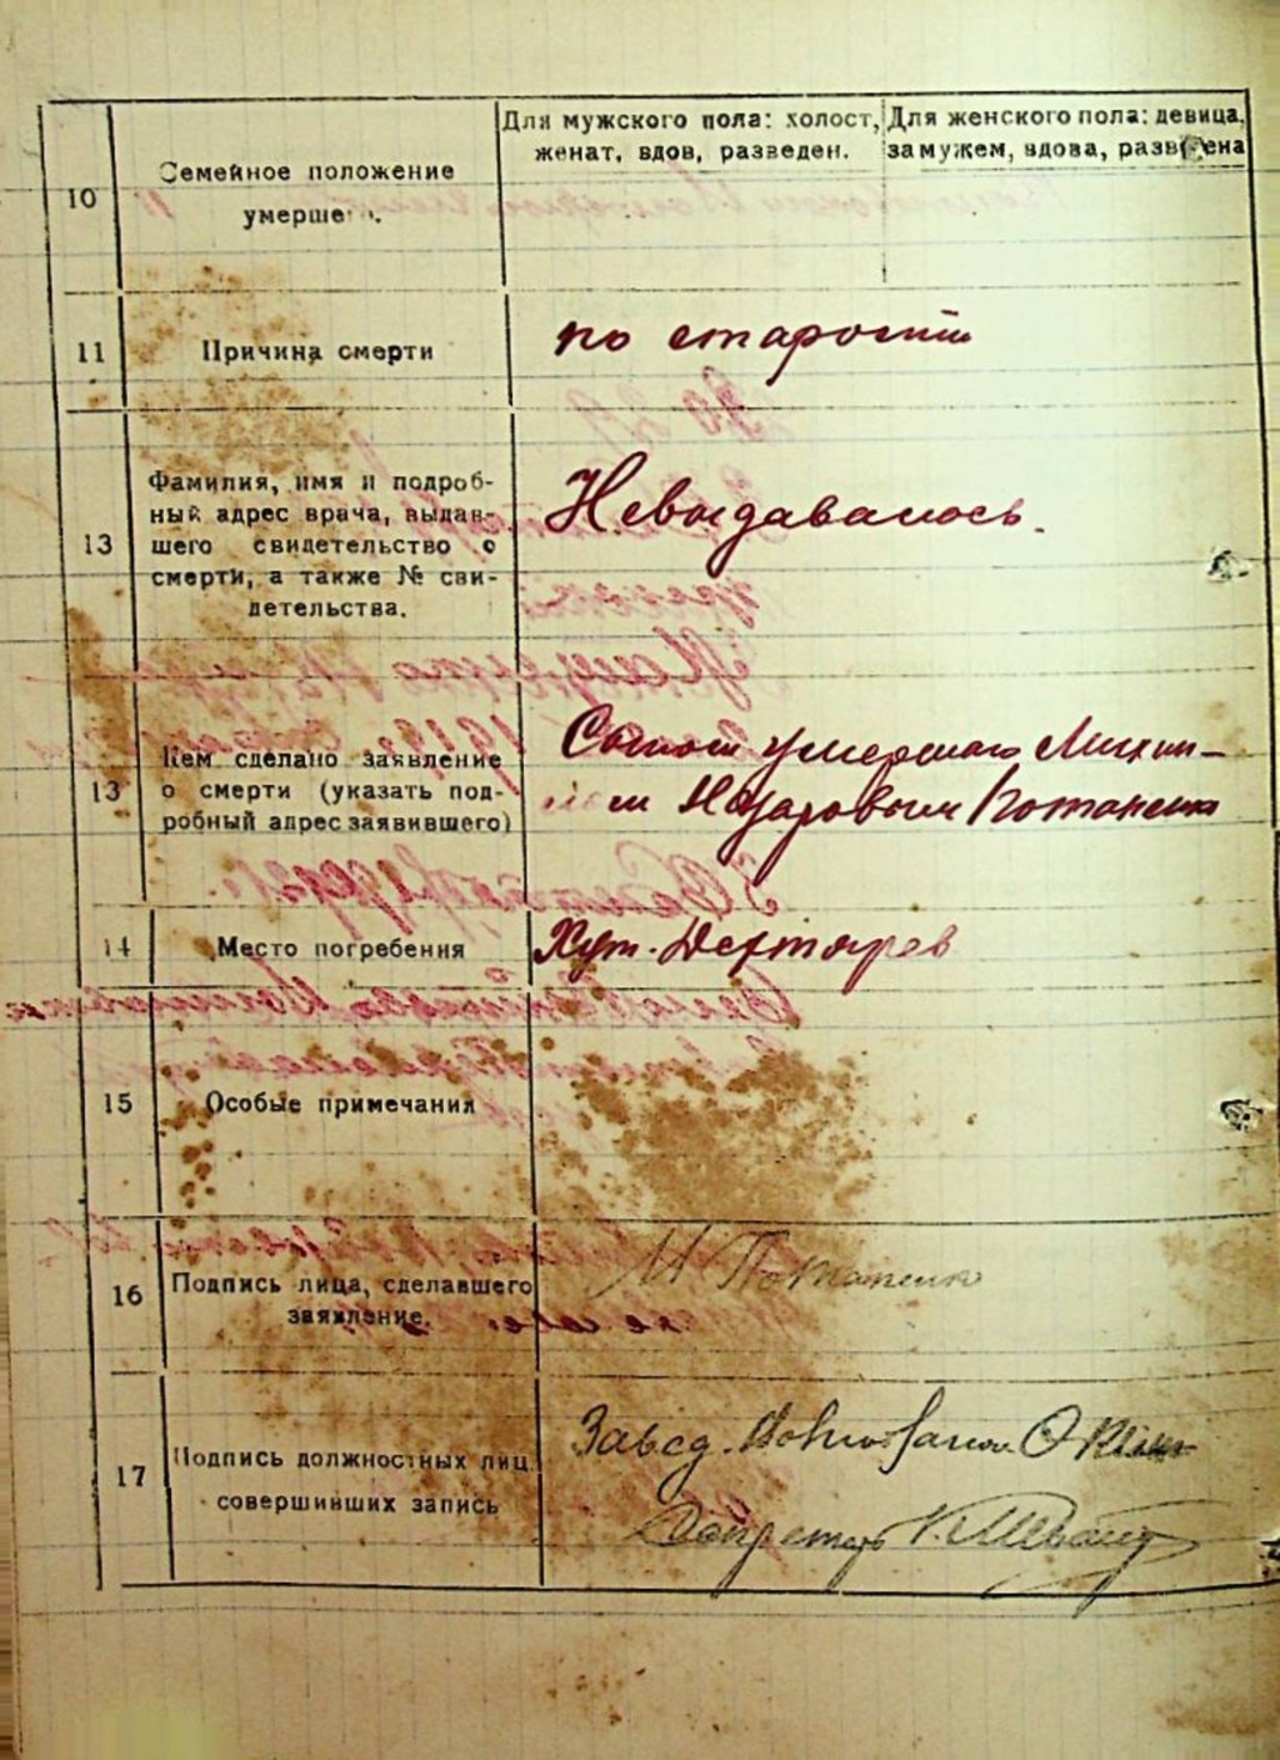 10
Семейное положение
умерше
Для мужского пола: холост,
женат, вдов, разведен.
Для женского пола: девица,
замужем, вдова, разведена
11
Причина смерти
по старости
13
Фамилия, имя и подроб-
ный адрес врача, выдав-
шего свидетельство о
смерти, а также № сви-
детельства.
Невыдавалось.
13
Кем сделано заявление
о смерти (указать под-
робный адрес заявившего)
Сыном умершаго Михаи-
лом Назаровым Потапенко
14
Место погребения
Хут. Дехтярев
15
Особые примечания
16
Подпись лица, сделавшего
заявление.
М Потапенко
17
Подпись должностных лиц
совершивших запись
Завед.
Секретарь